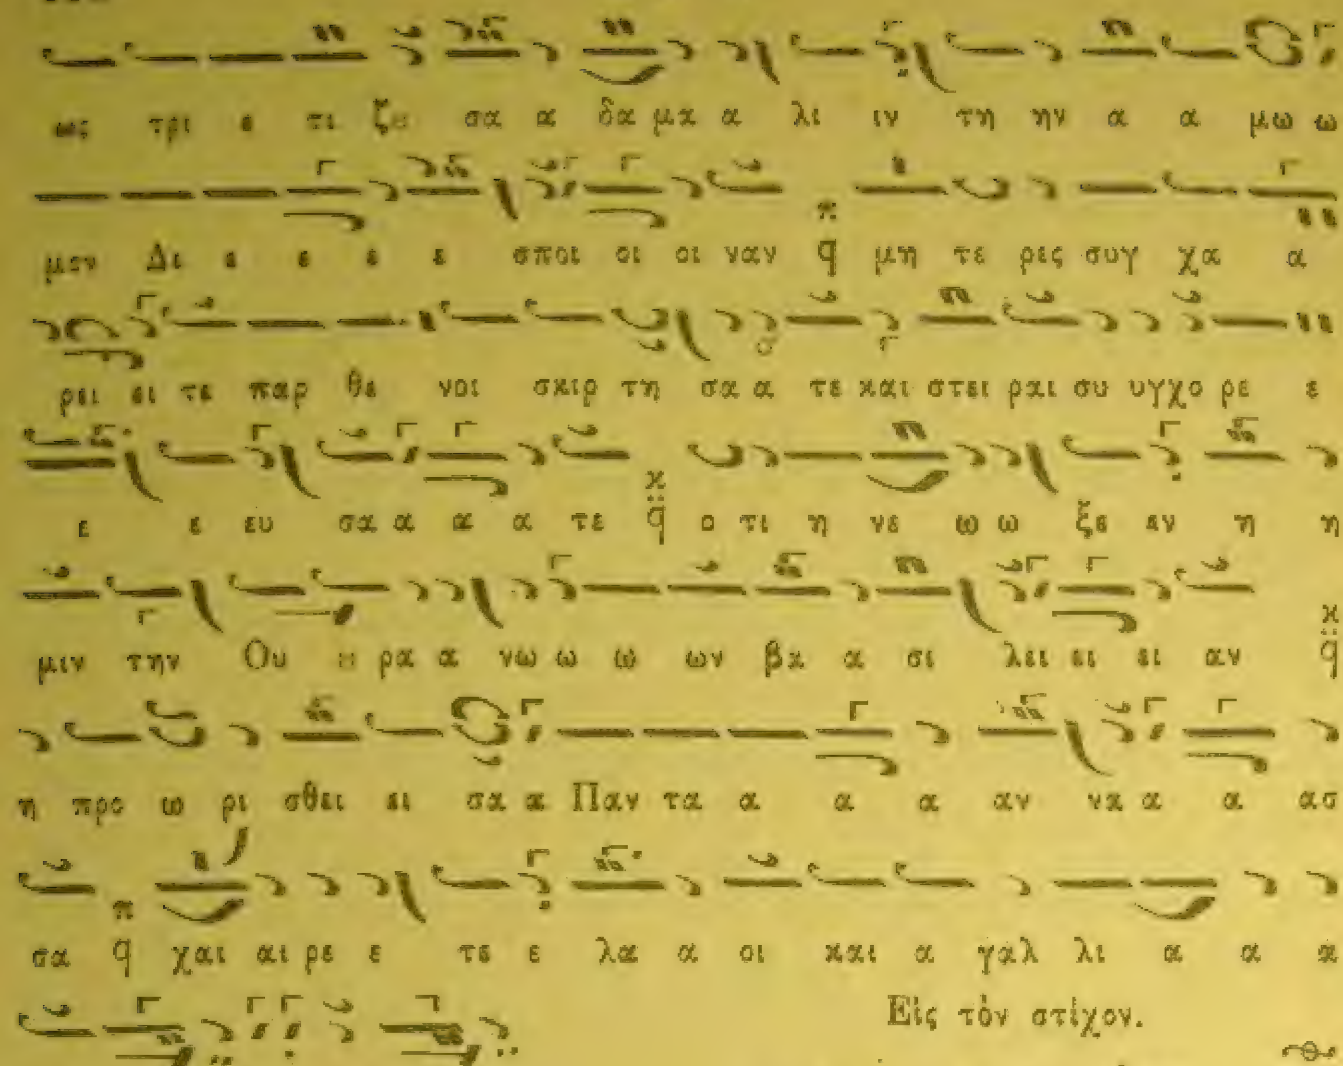 ως τρι ε τι ζου σα α δα μα α λι ιν τη ην α α μω ω
μον Δε ε ε ε ε σποι οι οι ναν π q μη τε ρες συγ χα α
ρει ει τε παρ θε νοι σκιρ τη σα α τε και στει ραι συ υγχο ρε ε
ε ε ευ σα α α α τε κ q ο τι η νε ω ω ξε εν η η
μιν την Ου ου ρα α νω ω ω ων βα α σι λει ει ει αν κ q
η προ ω ρι σθει ει σα α Παν τα α α α αν να α α ασ
σα π q χαι αι ρε ε τε ε λα α οι και α γαλ λι α α α
Εἰς τὸν στίχον.